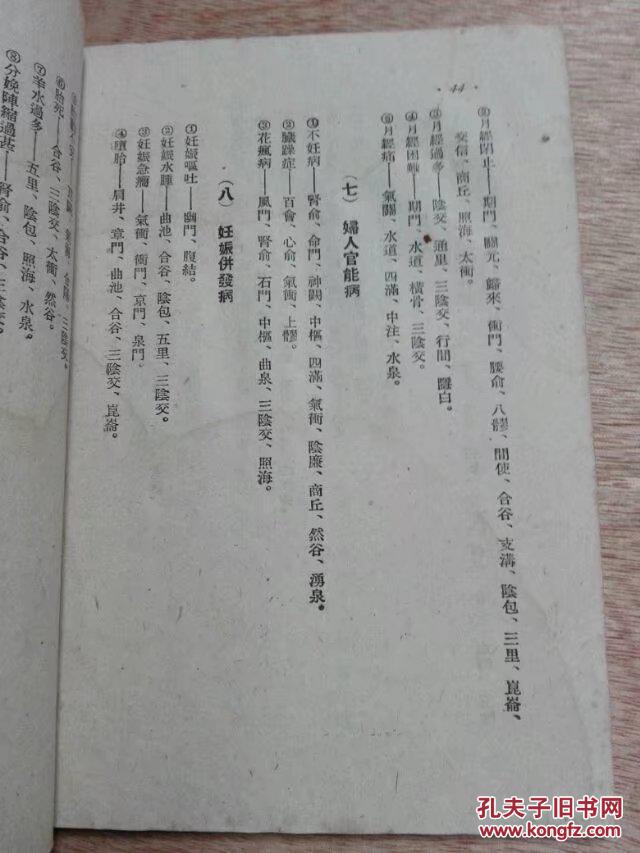 44
②月經閉止——期門、關元、歸來、衝門、腰俞、八髎、間使、合谷、支溝、陰包、三里、崑崙、
交信、商丘、照海、太衝。
③月經過多——陰交、通里、三陰交、行間、隱白。
④月經困難——期門、水道、橫骨、三陰交。
⑤月經痛——氣關、水道、四滿、中注、水泉。
(七) 婦人官能病
①不妊病——腎俞、命門、神闕、中樞、四滿、氣衝、陰廉、商丘、然谷、湧泉。
②臟躁症——百會、心俞、氣衝、上髎。
③花瘋病——風門、腎俞、石門、中樞、曲泉、三陰交、照海。
(八) 妊娠併發病
①妊娠嘔吐——幽門、腹結。
②妊娠水腫——曲池、合谷、陰包、五里、三陰交。
③妊娠急癇——氣衝、衝門、京門、泉門。
④墮胎——肩井、章門、曲池、合谷、三陰交、崑崙。
三陰交。
⑥胎死——合谷、三陰交、太衝、然谷。
⑦羊水過多——五里、陰包、照海、水泉。
⑧分娩陣縮過甚——腎俞、合谷、三陰交。
孔夫子旧书网
www.kongfz.com